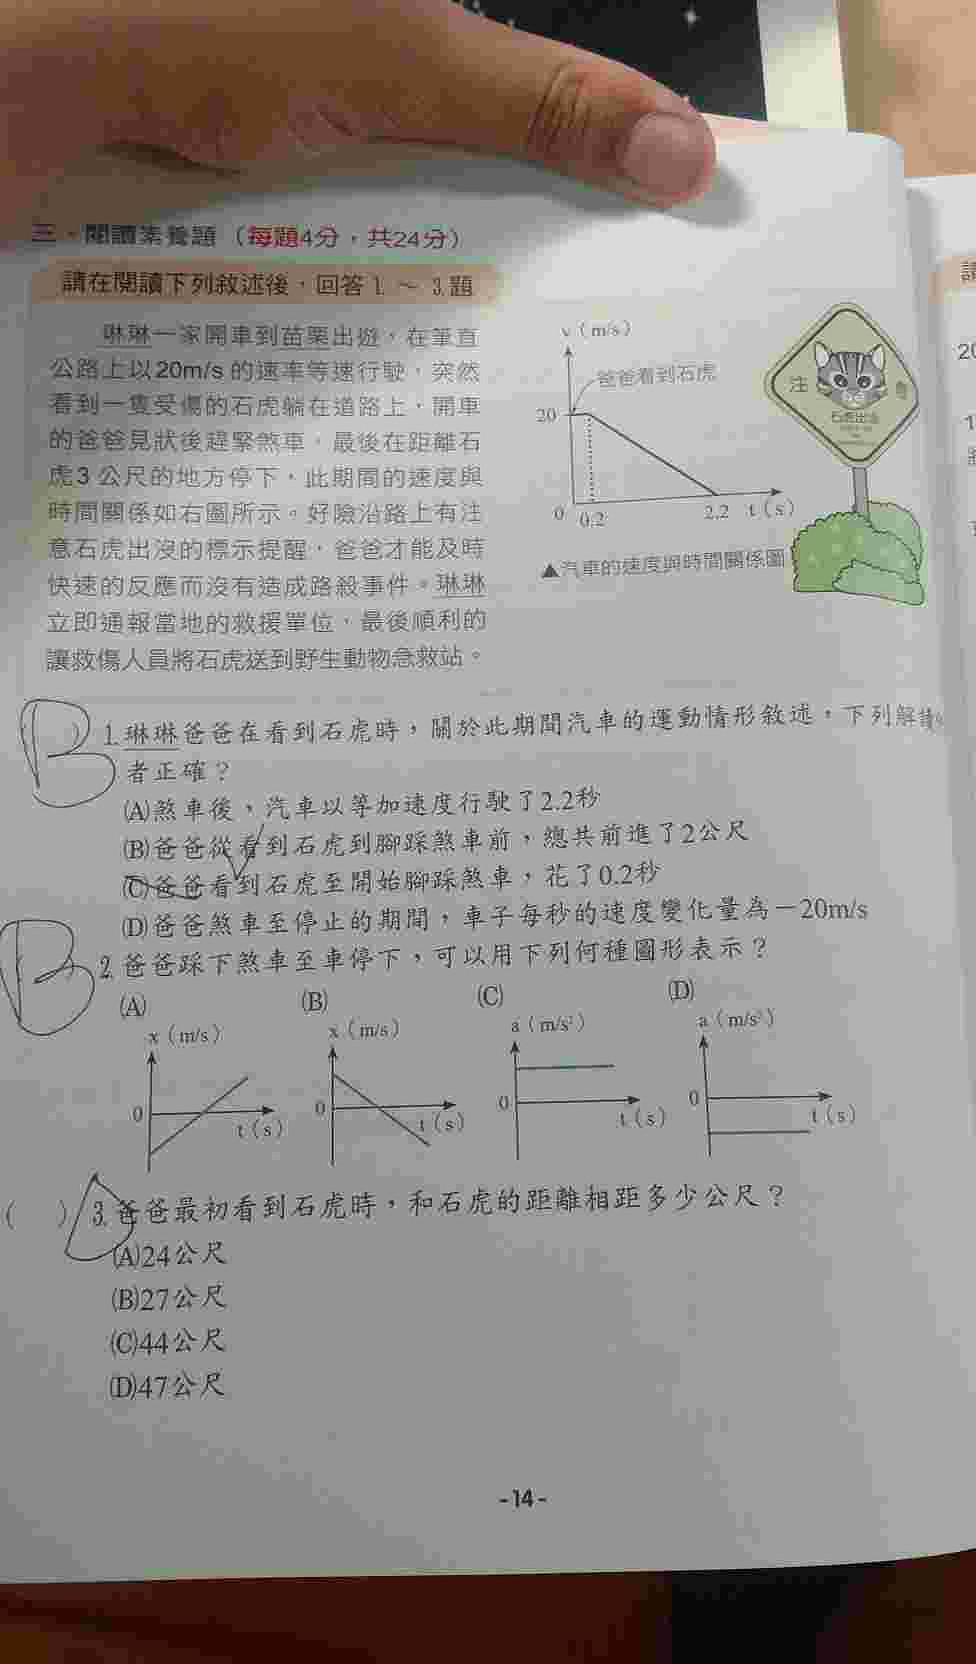 三、閱讀素養題（每題4分，共24分）
請在閱讀下列敘述後，回答1.～3.題
琳琳一家開車到苗栗出遊，在筆直
公路上以20m/s的速率等速行駛，突然
看到一隻受傷的石虎躺在道路上，開車
的爸爸見狀後趕緊煞車，最後在距離石
虎3公尺的地方停下，此期間的速度與
時間關係如右圖所示。好險沿路上有注
意石虎出沒的標示提醒，爸爸才能及時
快速的反應而沒有造成路殺事件。琳琳
立即通報當地的救援單位，最後順利的
讓救傷人員將石虎送到野生動物急救站。
v（m/s）
爸爸看到石虎
20
0 0.2 2.2 t（s）
▲汽車的速度與時間關係圖
注 意
石虎出沒
B
( )1.琳琳爸爸在看到石虎時，關於此期間汽車的運動情形敘述，下列解讀
者正確？
(A)煞車後，汽車以等加速度行駛了2.2秒
(B)爸爸從看到石虎到腳踩煞車前，總共前進了2公尺
(C)爸爸看到石虎至開始腳踩煞車，花了0.2秒
(D)爸爸煞車至停止的期間，車子每秒的速度變化量為－20m/s
B
2.爸爸踩下煞車至車停下，可以用下列何種圖形表示？
(A) (B) (C) (D)
x（m/s） x（m/s） a（m/s²） a（m/s²）
0 t（s） 0 t（s） 0 t（s） 0 t（s）
( )3.爸爸最初看到石虎時，和石虎的距離相距多少公尺？
(A)24公尺
(B)27公尺
(C)44公尺
(D)47公尺
-14-
20
1